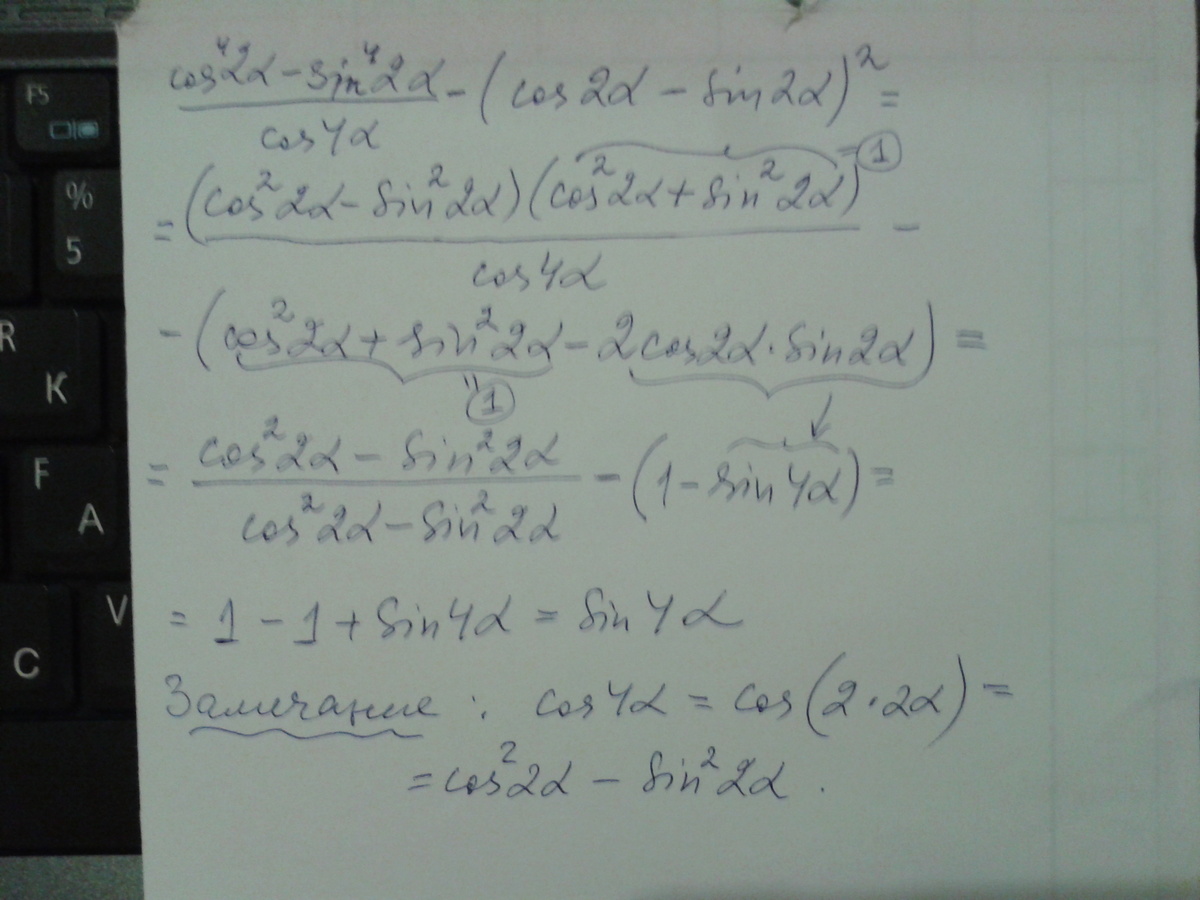 F5
%
5
R
К
F
А
V
C
cos⁴2α − sin⁴2α / cos4α − (cos2α − sin2α)² =
= (cos²2α − sin²2α)(cos²2α + sin²2α) / cos4α −
=①
− (cos²2α + sin²2α − 2cos2α · sin2α) =
"①
= cos²2α − sin²2α / cos²2α − sin²2α − (1 − sin4α) =
= 1 − 1 + sin4α = sin4α
Замечание : cos4α = cos(2·2α) =
= cos²2α − sin²2α .